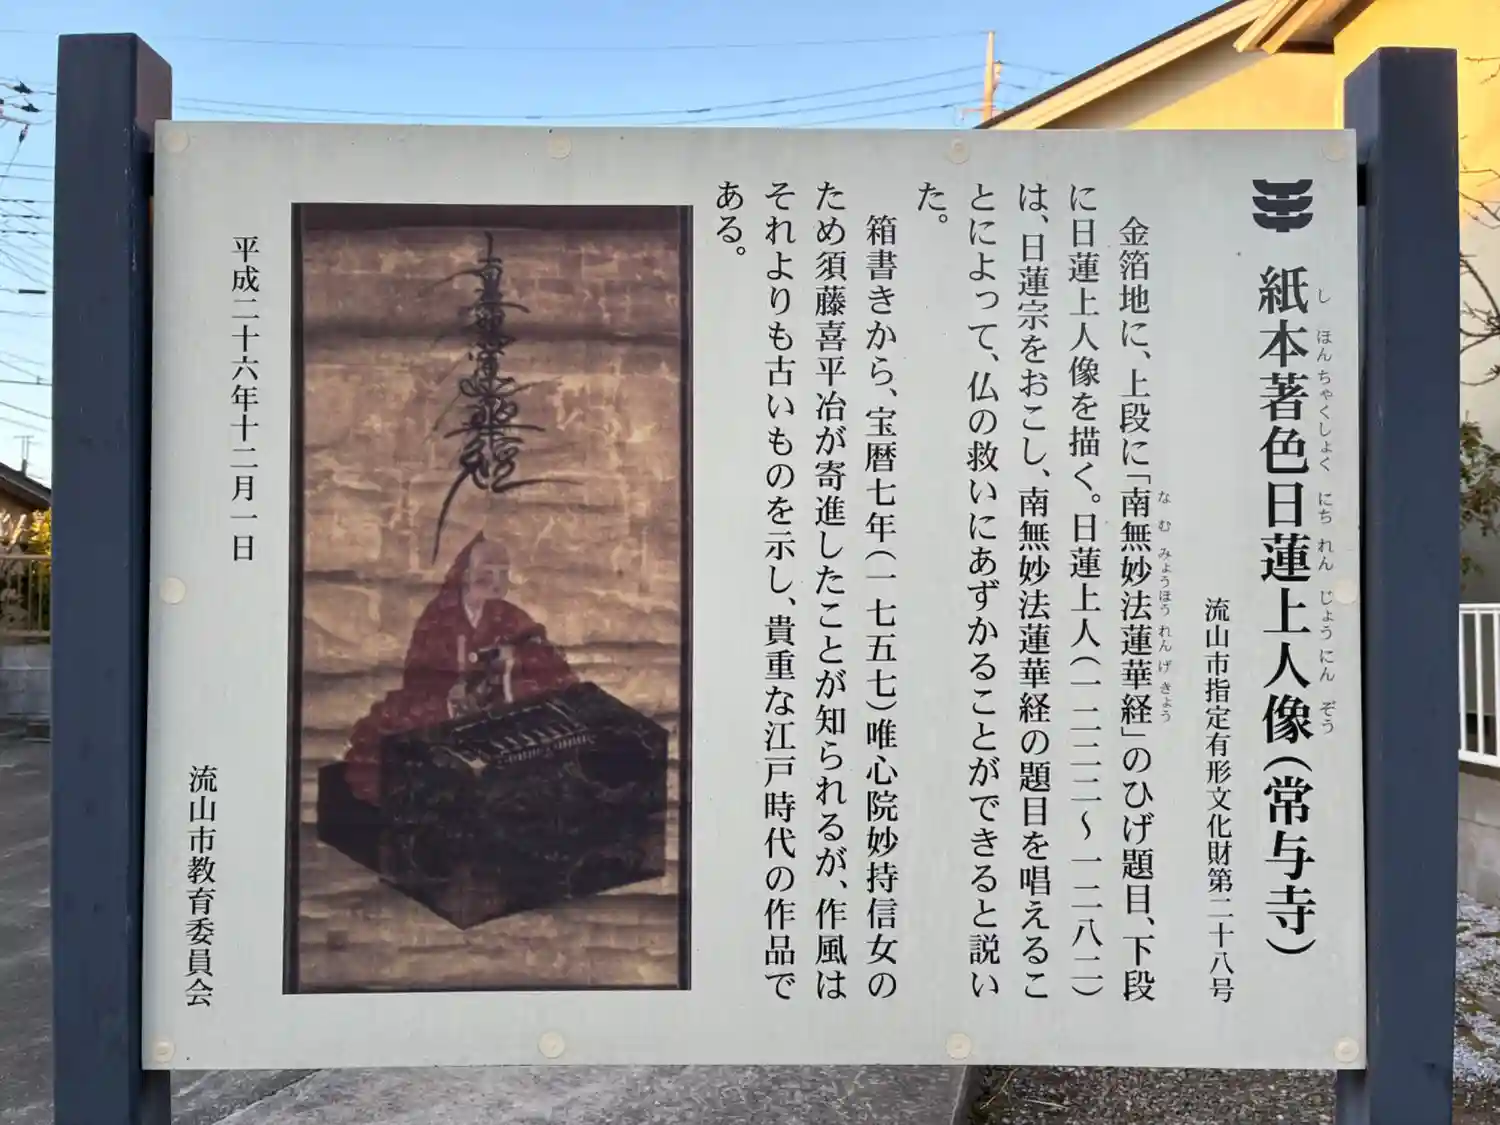 紙本著色日蓮上人像（常与寺）
し ほん ちゃくしょく にち れん じょう にん ぞう
流山市指定有形文化財第二十八号
金箔地に、上段に「南無妙法蓮華経」のひげ題目、下段
な む みょうほう れん げ きょう
に日蓮上人像を描く。日蓮上人（一二二二～一二八二）
は、日蓮宗をおこし、南無妙法蓮華経の題目を唱えるこ
とによって、仏の救いにあずかることができると説い
た。
箱書きから、宝暦七年（一七五七）唯心院妙持信女の
ため須藤喜平治が寄進したことが知られるが、作風は
それよりも古いものを示し、貴重な江戸時代の作品で
ある。
南無妙法蓮華経
平成二十六年十二月一日
流山市教育委員会